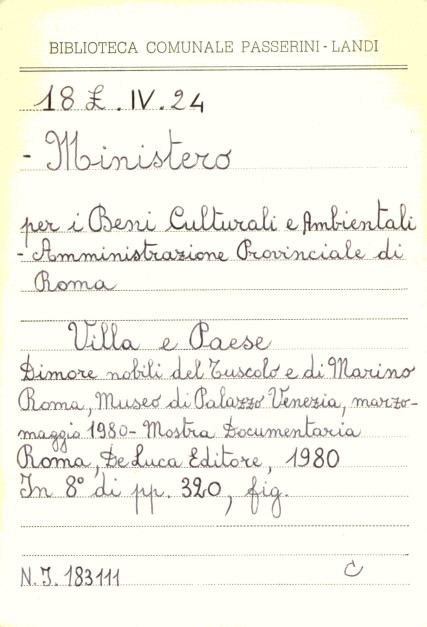 BIBLIOTECA COMUNALE PASSERINI - LANDI
18 L. IV. 24
- Ministero
per i Beni Culturali e Ambientali
- Amministrazione Provinciale di
Roma
Villa e Paese
Dimore nobili del Tuscolo e di Marino
Roma, Museo di Palazzo Venezia, marzo-
maggio 1980 - Mostra Documentaria
Roma, De Luca Editore, 1980
In 8° di pp. 320, fig.
N. I. 183111
C